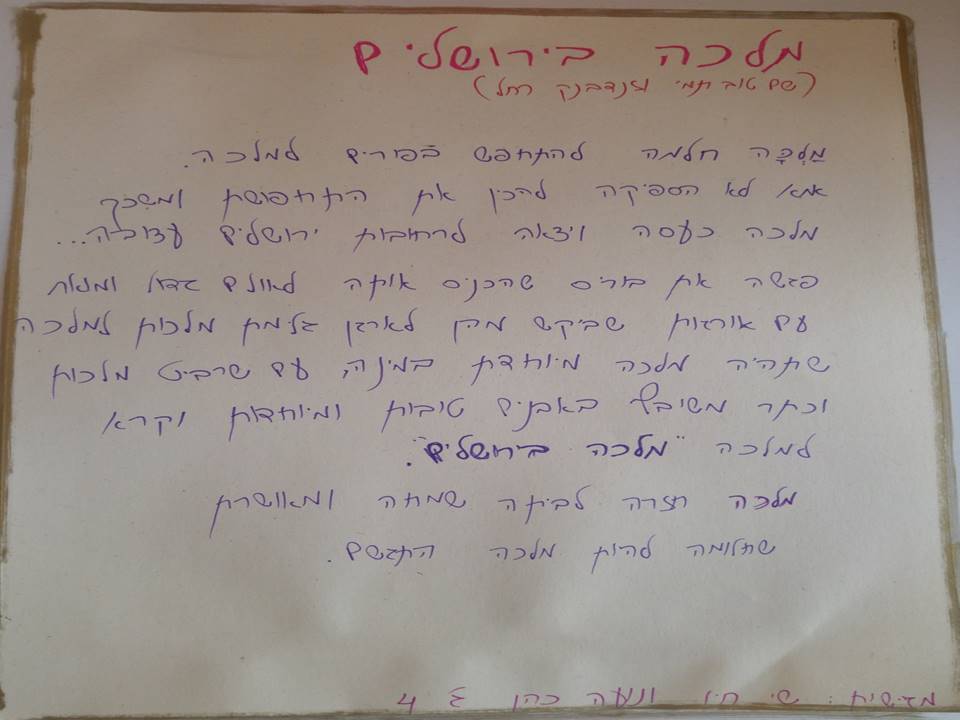 מלכה בירושלים
(שם טוב תמי וזנדבנק רחל)
מַלְכָּה חלמה להתחפש בפורים למלכה.
אמא לא הספיקה להכין את התחפושת ומשכך
מלכה כעסה ויצאה לרחובות ירושלים עצובה...
פגשה את בוריס שהכניס אותה לאולם גדול ומלא
עם אורגות שביקש מהן לארגן גלימת מלכות למלכה
שתהיה מלכה מיוחדת במינה, עם שרביט מלכות
וכתר משובץ באבנים טובות ומיוחדות וקרא
למלכה "מלכה בירושלים".
מלכה חזרה לביתה שמחה ומאושרת
שחלומה להיות מלכה התגשם.
מגישות: שי חיו ונעה כהן ג 4